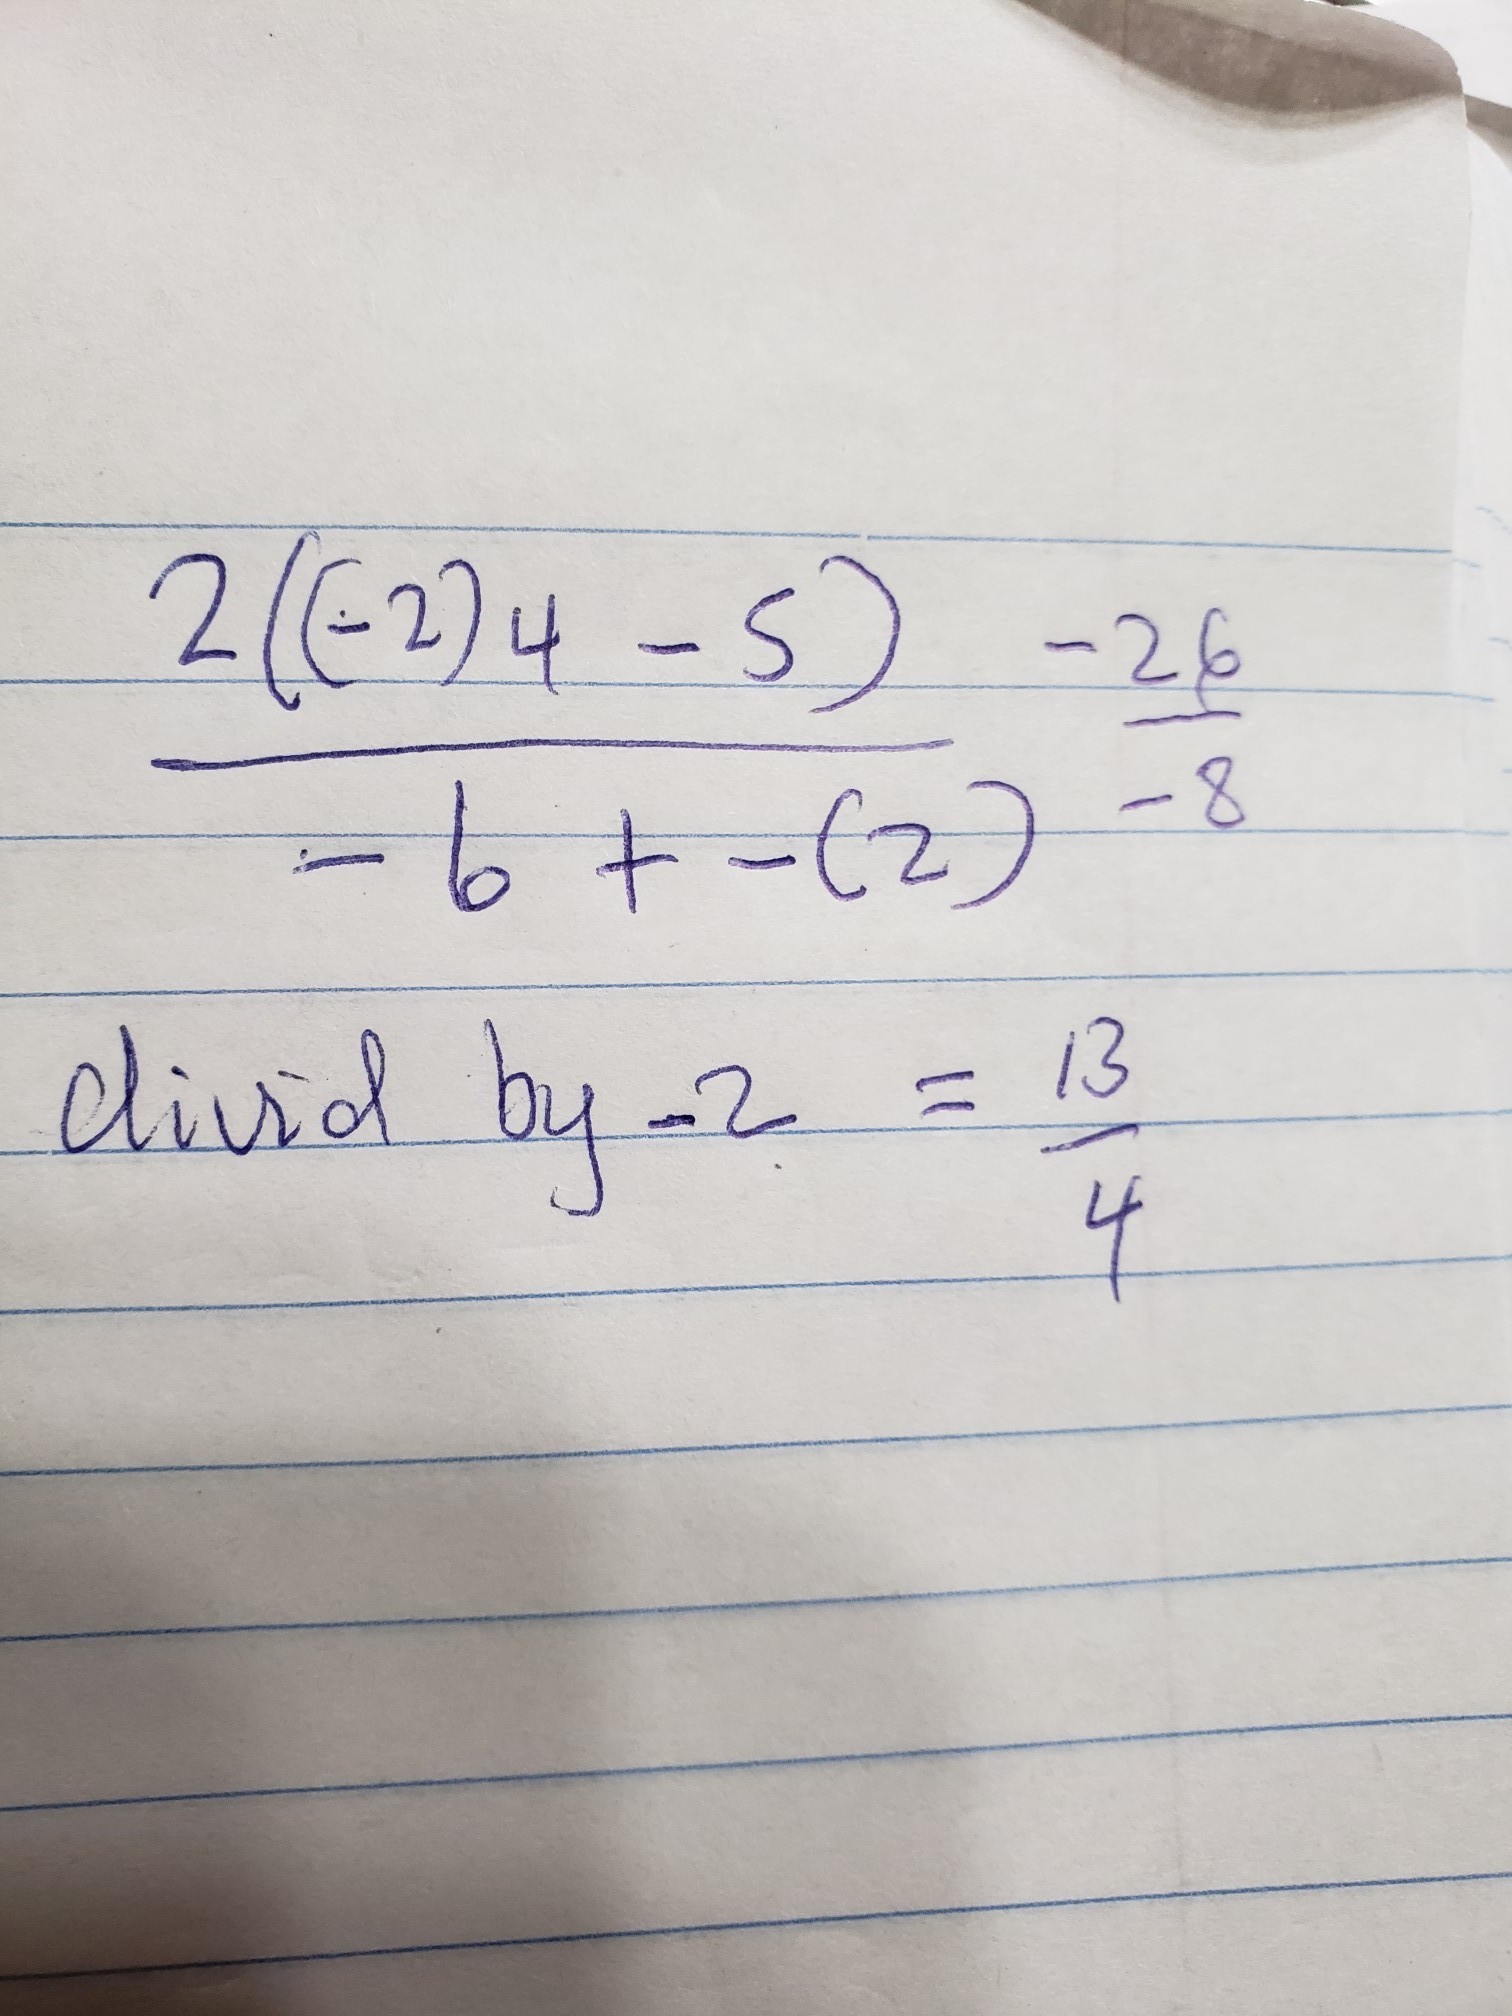 2((-2)4 - 5) -26
-6 + -(2) -8
divid by -2 = 13
4